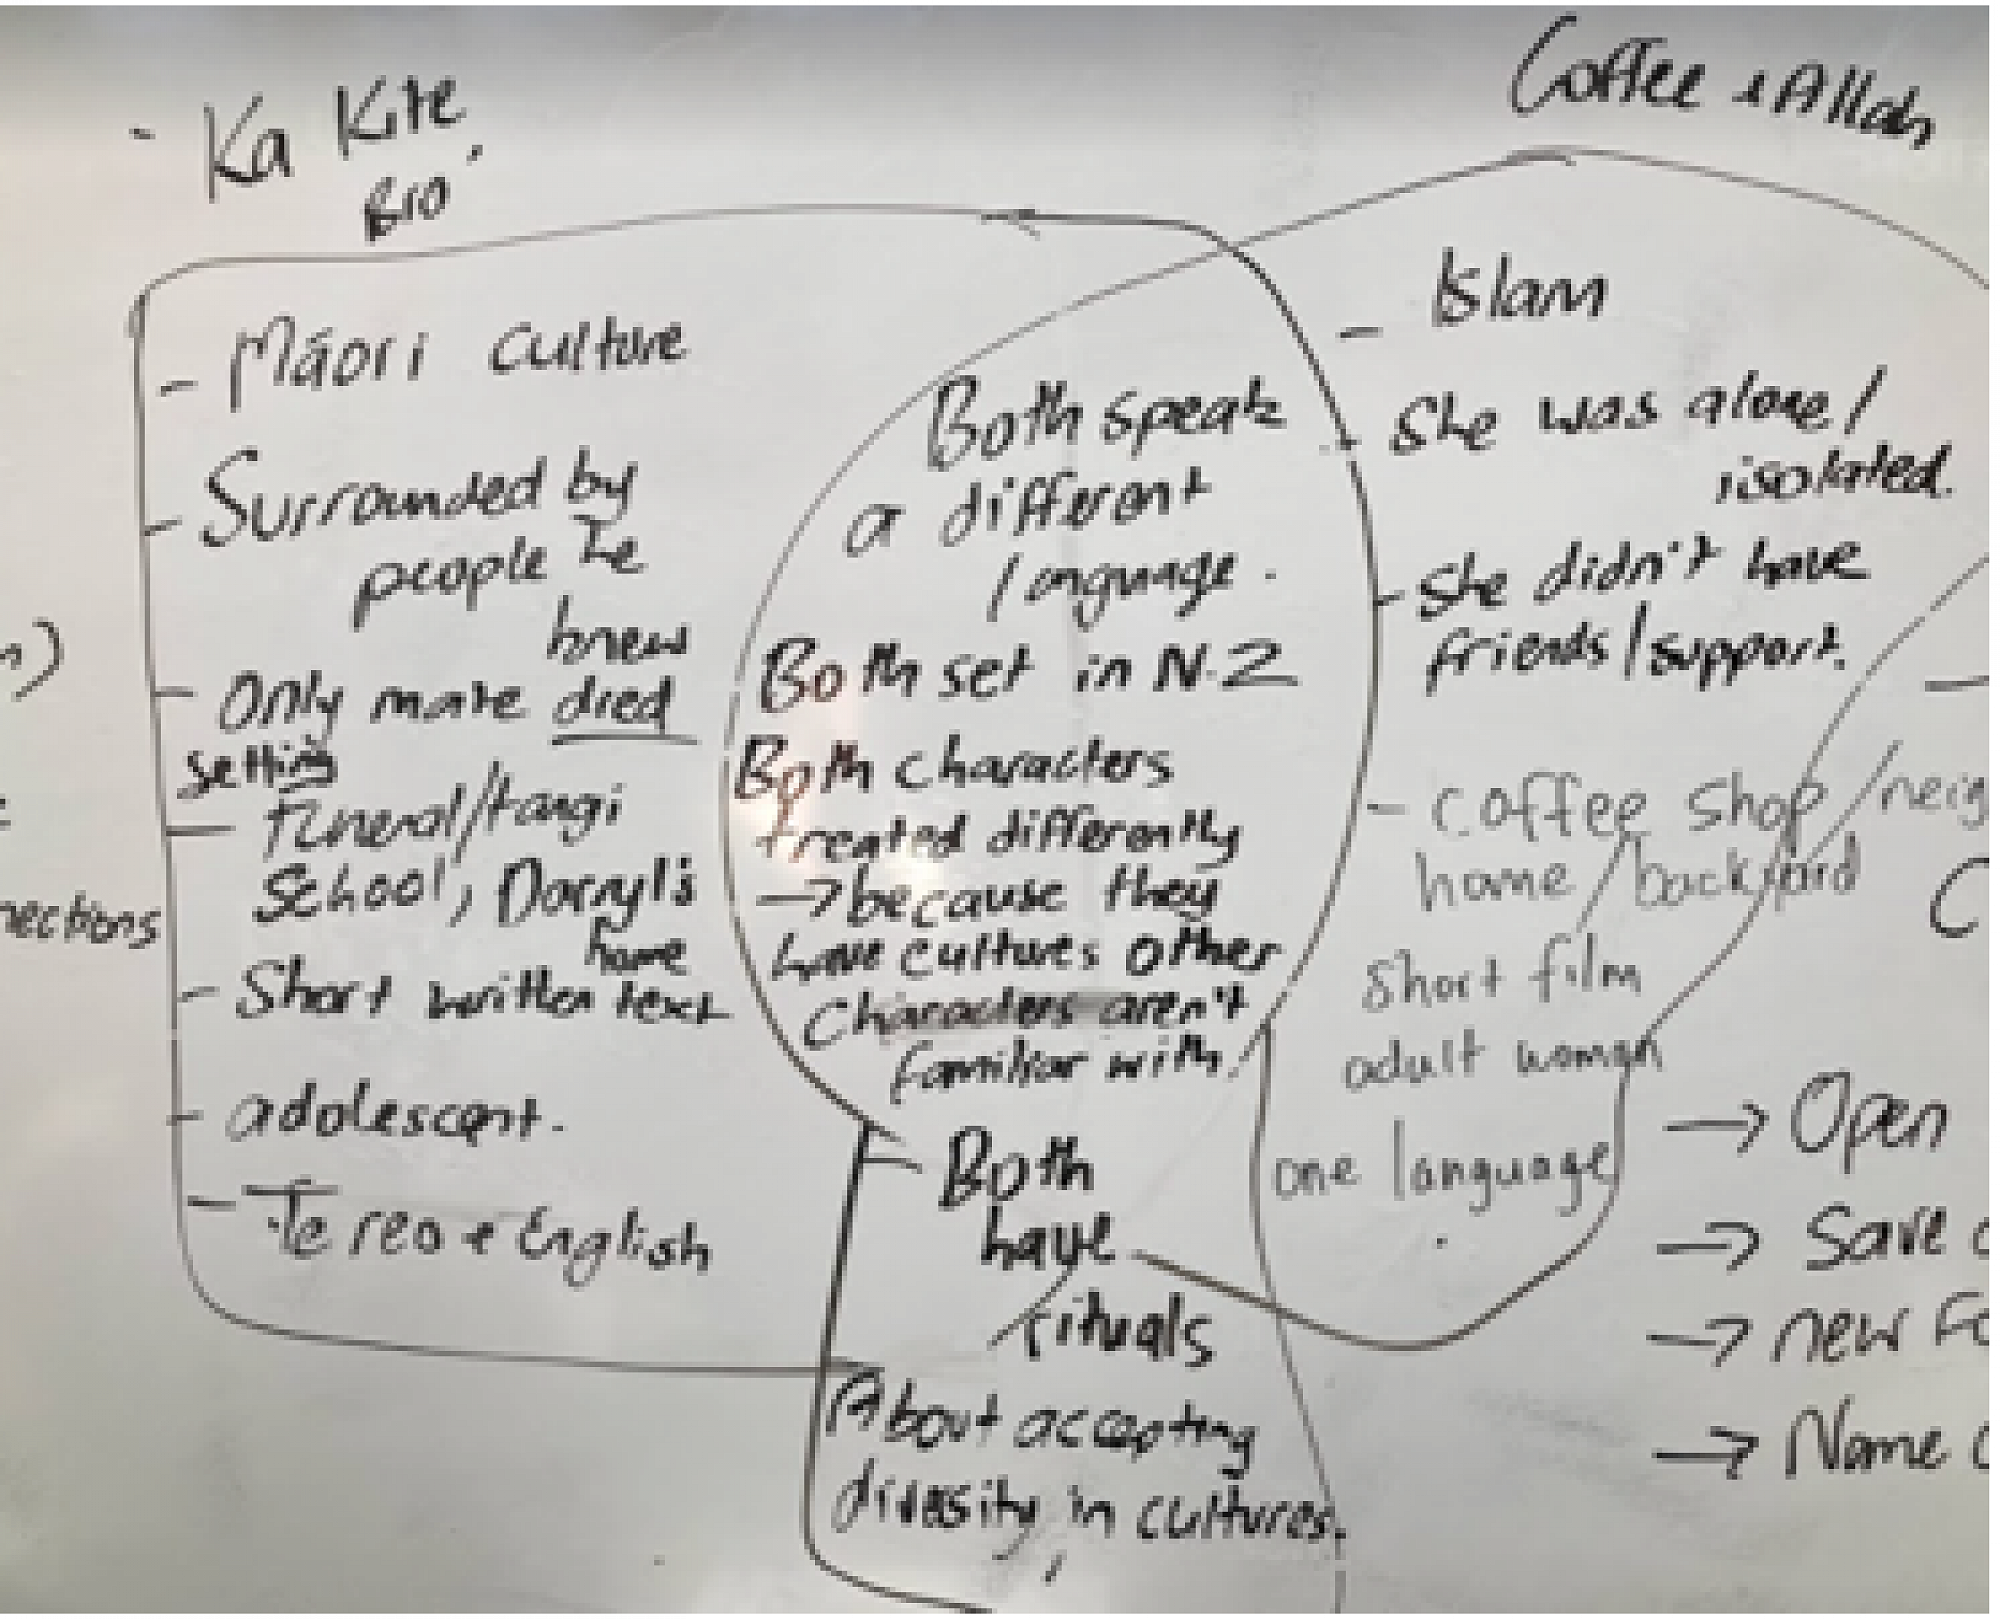 "Ka Kite
Bro"
- Máori culture
- Surrounded by
people he
knew
- Only mate died
Setting
- funeral/tangi
School, Darryl's
home
- Short written text
- adolescent.
- Te reo & English
Both speak
a different
language.
Both set in N.Z
Both characters
treated differently
→ because they
have cultures other
characters aren't
familiar with.
- Both
have
rituals
About accepting
divesity in cultures.
Coffee & Allah
- Islam
- She was alone/
isolated.
- She didn't have
friends/support.
- coffee shop/neig
home/backyard
short film
adult woman
one language
nections
→ Open
→ Save
→ new Fo
→ Name